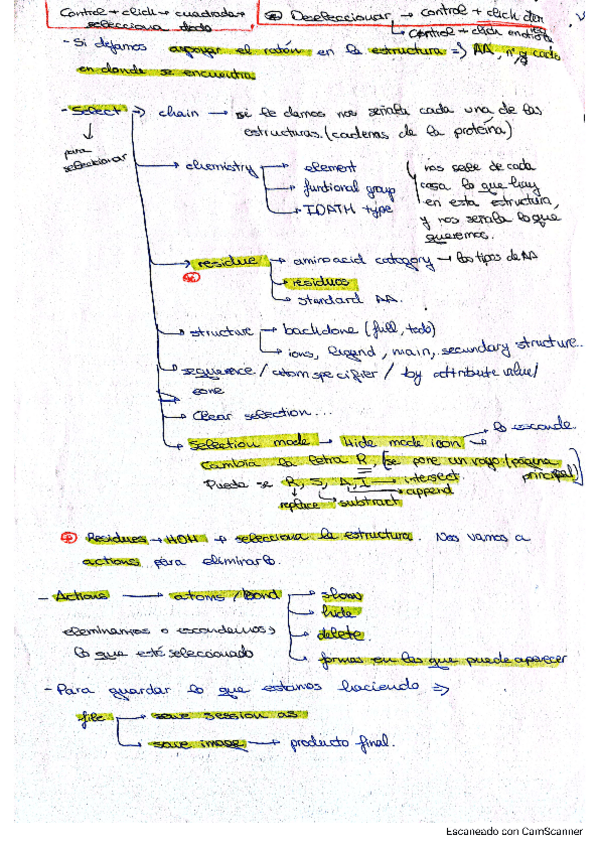 Control + click → cuadrado →
selecciona todo
Deseleccionar → Control + click
→ Control + click
- Si dejamos apoyar el ratón en la estructura => AA, nº, y
en donde se encuentra
- Select => chain → si le damos nos señala cada una de las
estructuras. (cadenas de la proteína)
para
seleccionar
→ chemistry → element
→ funtional group
→ IDATM type
nos sale de cada
cosa lo que hay
en esta estructura,
y nos señala lo que
queremos.
→ residue → amino acid category → los tipos de AA
→ residuos
→ standard AA.
→ structure → backbone (full, todo)
→ ions, ligand, main, secundary structure..
→ sequence / atom specifier / by attribute value /
zone
→ Clear selection...
→ Selection mode → Hide mode icon → lo esconde.
Cambia la letra R, (se pone un rayo (página
principal)
Puede se R, S, A, I → intersect
→ append
replace subtract
Residues → HOH → selecciona la estructura. Nos vamos a
actions para eliminarlo.
- Actions → atoms / bond → show
→ hide
→ delete.
→ formas en las que puede aparecer
eliminamos o escondemos
lo que esté seleccionado
- Para guardar lo que estamos haciendo =>
file → save session as
→ save image → producto final.
Escaneado con CamScanner